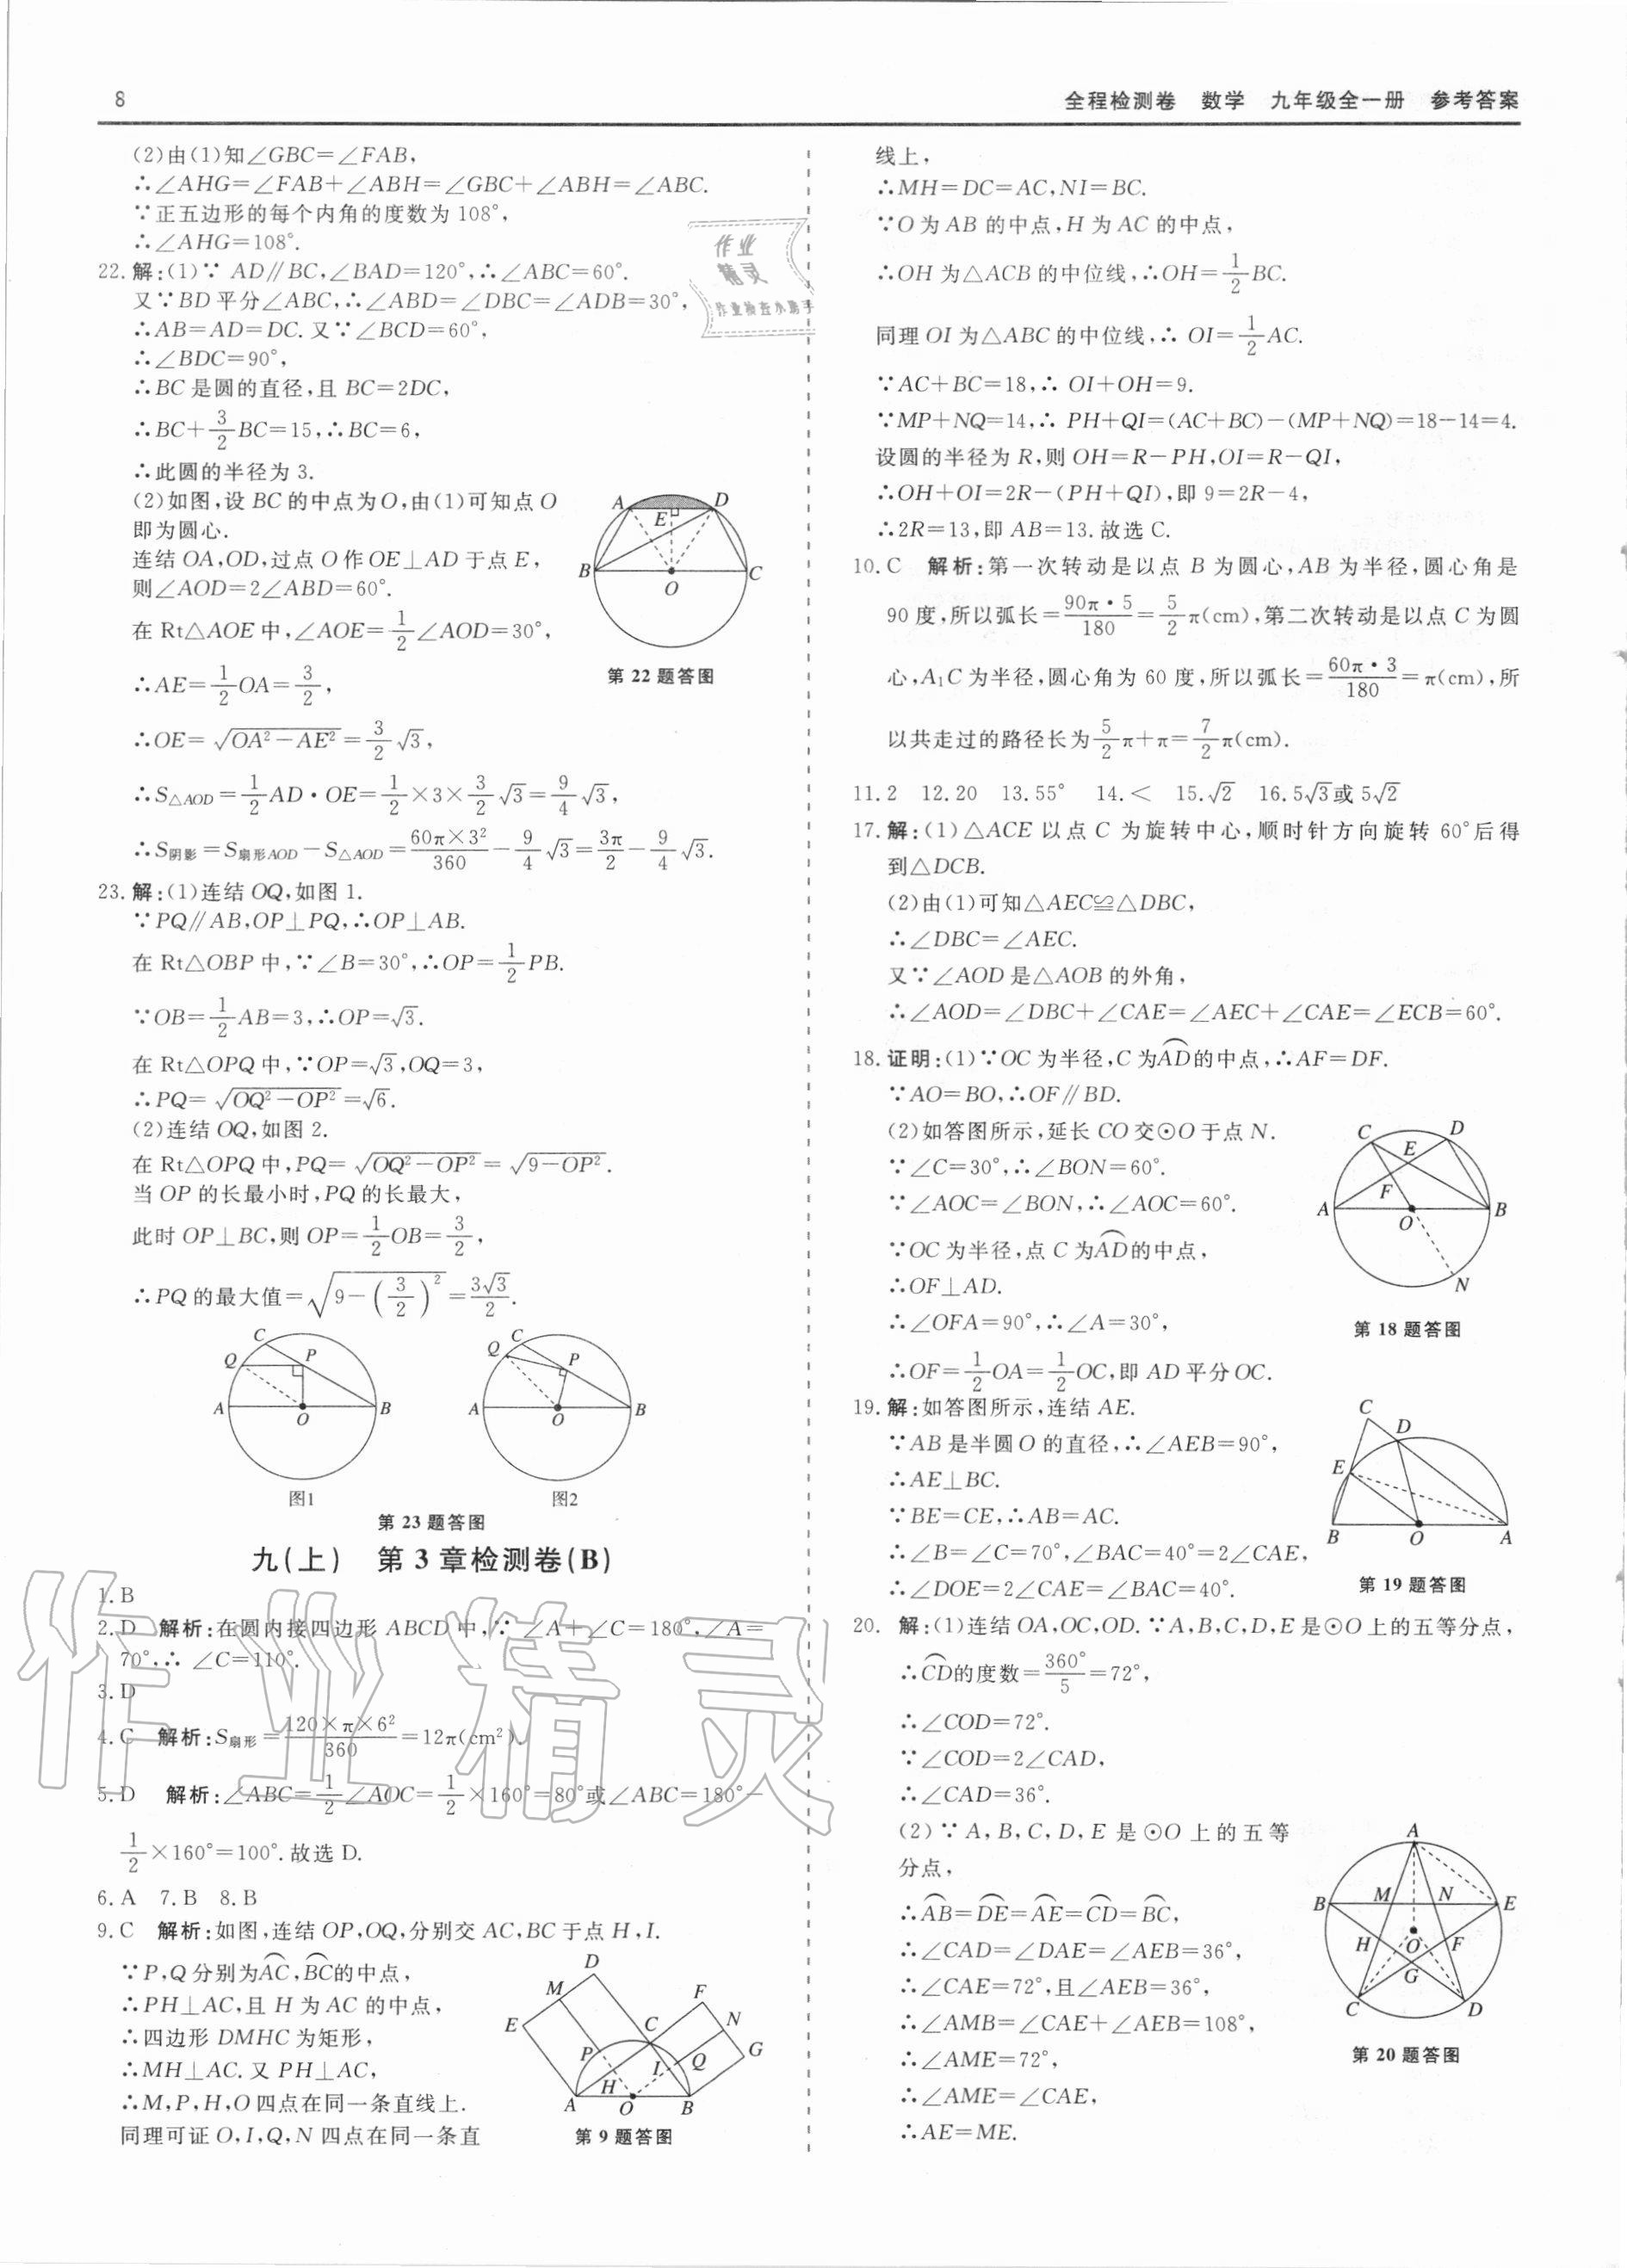 8
全程检测卷 数学 九年级全一册 参考答案
(2)由(1)知∠GBC=∠FAB,
∴∠AHG=∠FAB+∠ABH=∠GBC+∠ABH=∠ABC.
∵正五边形的每个内角的度数为108°,
∴∠AHG=108°.
22.解:(1)∵ AD∥BC,∠BAD=120°,∴∠ABC=60°.
又∵BD平分∠ABC,∴∠ABD=∠DBC=∠ADB=30°,
∴AB=AD=DC.又∵∠BCD=60°,
∴∠BDC=90°,
∴BC是圆的直径,且BC=2DC,
∴BC+3/2BC=15,∴BC=6,
∴此圆的半径为3.
(2)如图,设BC的中点为O,由(1)可知点O
即为圆心.
连结OA,OD,过点O作OE⊥AD于点E,
则∠AOD=2∠ABD=60°.
在Rt△AOE中,∠AOE=1/2∠AOD=30°,
∴AE=1/2OA=3/2,
∴OE=√(OA²-AE²)=3/2√3,
∴S△AOD=1/2AD·OE=1/2×3×3/2√3=9/4√3,
∴S阴影=S扇形AOD-S△AOD=60π×3²/360-9/4√3=3π/2-9/4√3.
A D E B O C
第22题答图
23.解:(1)连结OQ,如图1.
∵PQ∥AB,OP⊥PQ,∴OP⊥AB.
在Rt△OBP中,∵∠B=30°,∴OP=1/2PB.
∵OB=1/2AB=3,∴OP=√3.
在Rt△OPQ中,∵OP=√3,OQ=3,
∴PQ=√(OQ²-OP²)=√6.
(2)连结OQ,如图2.
在Rt△OPQ中,PQ=√(OQ²-OP²)=√(9-OP²).
当OP的长最小时,PQ的长最大,
此时OP⊥BC,则OP=1/2OB=3/2,
∴PQ的最大值=√(9-(3/2)²)=3√3/2.
C Q P A O B
图1
C Q P A O B
图2
第23题答图
九(上) 第3章检测卷(B)
1.B
2.D 解析:在圆内接四边形ABCD中,∵ ∠A+∠C=180°,∠A=
70°,∴ ∠C=110°.
3.D
4.C 解析:S扇形=120×π×6²/360=12π(cm²).
5.D 解析:∠ABC=1/2∠AOC=1/2×160°=80°或∠ABC=180°-
1/2×160°=100°.故选D.
6.A 7.B 8.B
9.C 解析:如图,连结OP,OQ,分别交AC,BC于点H,I.
∵P,Q分别为⌒AC,⌒BC的中点,
∴PH⊥AC,且H为AC的中点,
∴四边形DMHC为矩形,
∴MH⊥AC.又PH⊥AC,
∴M,P,H,O四点在同一条直线上.
同理可证O,I,Q,N四点在同一条直
D M F E C N P Q G H I A O B
第9题答图
线上,
∴MH=DC=AC,NI=BC.
∵O为AB的中点,H为AC的中点,
∴OH为△ACB的中位线,∴OH=1/2BC.
同理OI为△ABC的中位线,∴ OI=1/2AC.
∵AC+BC=18,∴ OI+OH=9.
∵MP+NQ=14,∴ PH+QI=(AC+BC)-(MP+NQ)=18-14=4.
设圆的半径为R,则OH=R-PH,OI=R-QI,
∴OH+OI=2R-(PH+QI),即9=2R-4,
∴2R=13,即AB=13.故选C.
10.C 解析:第一次转动是以点B为圆心,AB为半径,圆心角是
90度,所以弧长=90π·5/180=5/2π(cm),第二次转动是以点C为圆
心,A₁C为半径,圆心角为60度,所以弧长=60π·3/180=π(cm),所
以共走过的路径长为5/2π+π=7/2π(cm).
11.2 12.20 13.55° 14.< 15.√2 16.5√3或5√2
17.解:(1)△ACE以点C为旋转中心,顺时针方向旋转60°后得
到△DCB.
(2)由(1)可知△AEC≌△DBC,
∴∠DBC=∠AEC.
又∵∠AOD是△AOB的外角,
∴∠AOD=∠DBC+∠CAE=∠AEC+∠CAE=∠ECB=60°.
18.证明:(1)∵OC为半径,C为⌒AD的中点,∴AF=DF.
∵AO=BO,∴OF∥BD.
(2)如答图所示,延长CO交⊙O于点N.
∵∠C=30°,∴∠BON=60°.
∵∠AOC=∠BON,∴∠AOC=60°.
∵OC为半径,点C为⌒AD的中点,
∴OF⊥AD.
∴∠OFA=90°,∴∠A=30°,
∴OF=1/2OA=1/2OC,即AD平分OC.
C D E F A O B N
第18题答图
19.解:如答图所示,连结AE.
∵AB是半圆O的直径,∴∠AEB=90°,
∴AE⊥BC.
∵BE=CE,∴AB=AC.
∴∠B=∠C=70°,∠BAC=40°=2∠CAE,
∴∠DOE=2∠CAE=∠BAC=40°.
C D E B O A
第19题答图
20.解:(1)连结OA,OC,OD.∵A,B,C,D,E是⊙O上的五等分点,
∴⌒CD的度数=360°/5=72°,
∴∠COD=72°.
∵∠COD=2∠CAD,
∴∠CAD=36°.
(2)∵A,B,C,D,E是⊙O上的五等
分点,
∴⌒AB=⌒DE=⌒AE=⌒CD=⌒BC,
∴∠CAD=∠DAE=∠AEB=36°,
∴∠CAE=72°,且∠AEB=36°,
∴∠AMB=∠CAE+∠AEB=108°,
∴∠AME=72°,
∴∠AME=∠CAE,
∴AE=ME.
A B M N E H O F G C D
第20题答图
作业
精灵
作业检查小助手
作业精灵